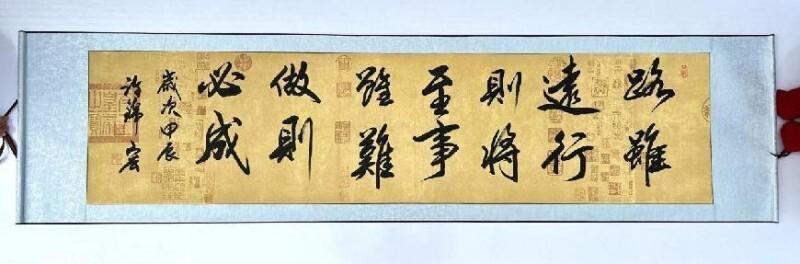 路雖
遠行
則將
至事
雖難
做則
必成
歲次甲辰
許錦宏